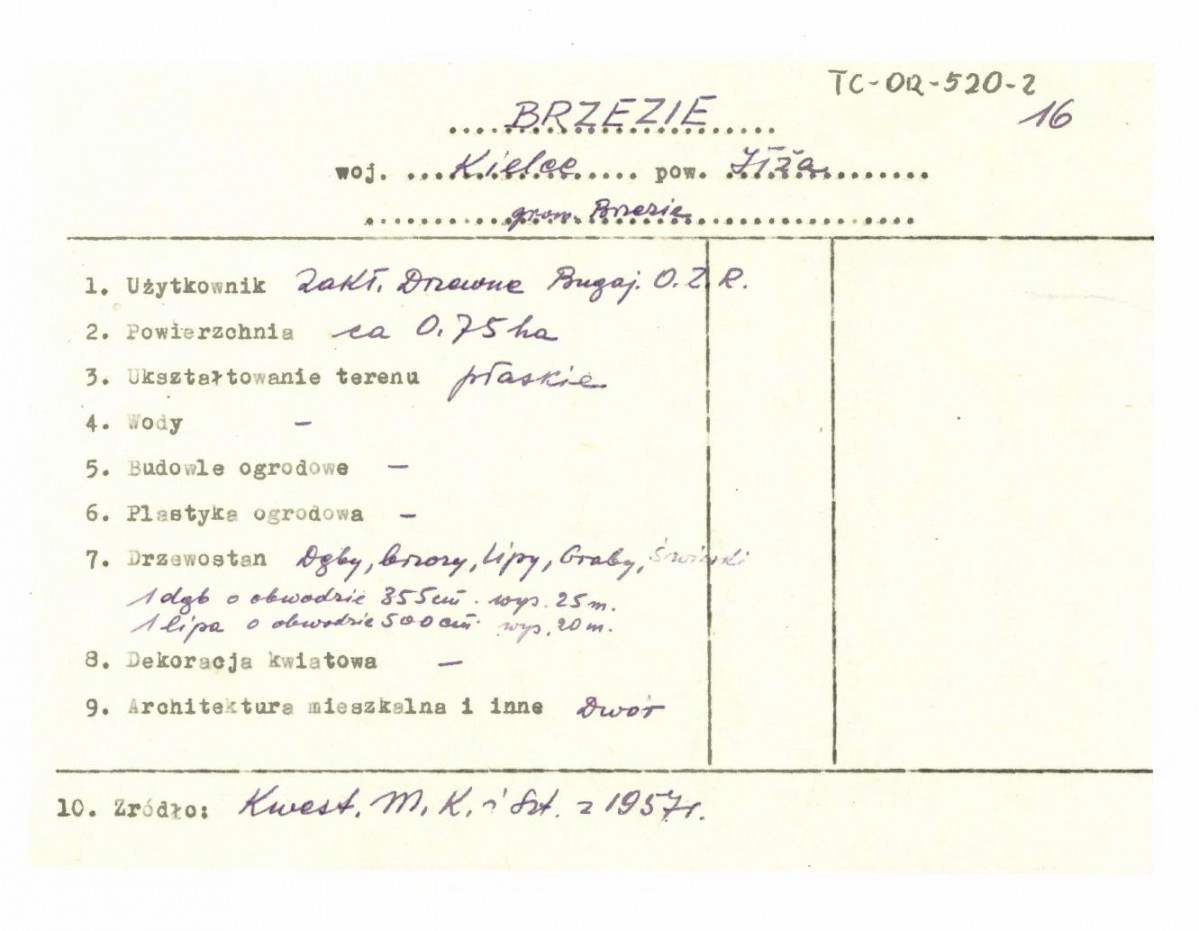 TC-OR-520-2
16
BRZEZIE
woj. Kielce pow. Iłża
grom. Brzezie
1. Użytkownik Zakł. Drzewne Bugaj. O.Z.R.
2. Powierzchnia ca 0.75 ha
3. Ukształtowanie terenu płaskie
4. Wody –
5. Budowle ogrodowe –
6. Plastyka ogrodowa –
7. Drzewostan Dęby, brzozy, lipy, Graby, Świerki
1 dąb o obwodzie 355 cm. wys. 25 m.
1 lipa o obwodzie 500 cm. wys. 20 m.
8. Dekoracja kwiatowa –
9. Architektura mieszkalna i inne Dwór
10. Zródło: Kwest. M.K. i Szt. z 1957 r.